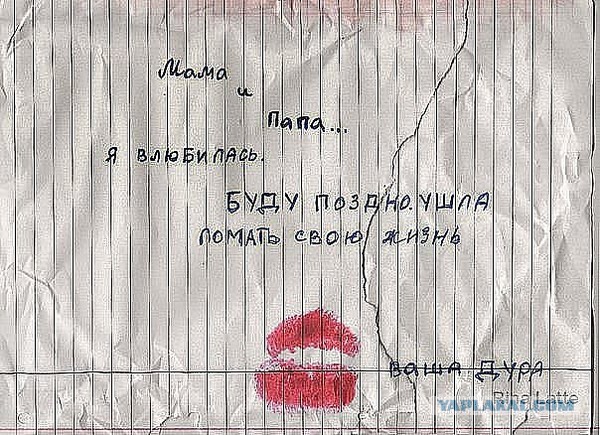 Мама
и
Папа...
Я ВЛЮБИЛАСЬ.
БУДУ ПОЗДНО. УШЛА
ЛОМАТЬ СВОЮ ЖИЗНЬ
ВАША ДУРА
Rina Latte
YAPLAKAL.COM